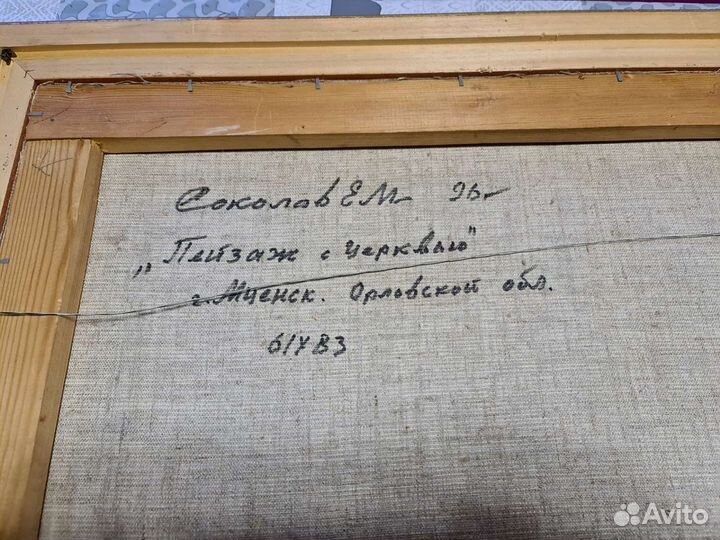 Соколов Е М 96
„Пейзаж с церквью"
г. Мценск. Орловской обл.
61х83
Avito